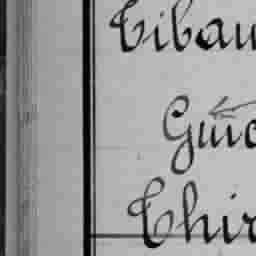 Tibau
Guic
Thir